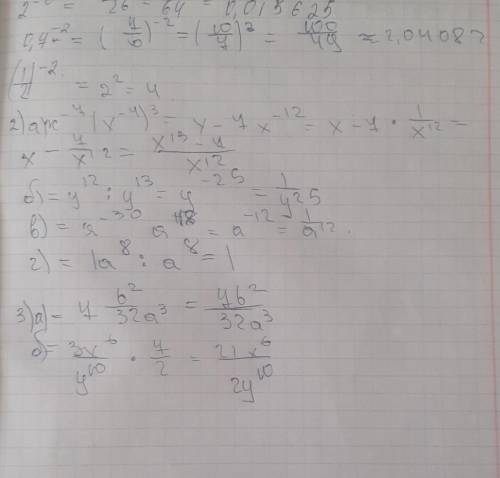 2⁻⁶ = 1/26 = 1/64 = 0,015625
0,7⁻² = (7/10)⁻² = (10/7)² = 100/49 ≈ 2,04087
(1/2)⁻² = 2² = 4
2) а) x⁻⁷(x⁻⁴)³ = x - 7x⁻¹² = x - 7 · 1/x¹² =
x - 7/x12 = x¹³ - 7/x¹²
б) = y¹² : y¹³ = y⁻²⁵ = 1/y25
в) = a⁻³⁰ a¹⁸ = a⁻¹² = 1/a12.
г) = 1a⁸ : a⁸ = 1
3) а) = 7 b²/32a³ = 7b²/32a³
б) = 3x⁶/y¹⁰ · 7/2 = 21x⁶/2y¹⁰